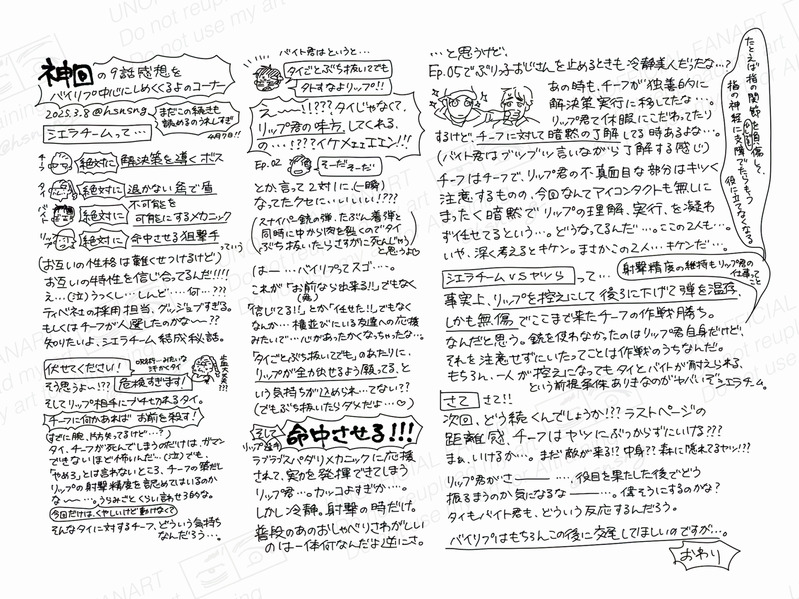 神回の9話感想を
バイリップ中心にしめくくるよのコーナー
2025.3.8 @hsnsng
まだこの続きも
読めるのうれしすぎ
4月7日!!
シエラチームって…
チーフ 絶対に 解決策を導くボス
タイ 絶対に 退かない笛で盾
バイト 絶対に 不可能を
可能にするメカニック
リップ 絶対に 命中させる狙撃手
っていう
(お互いの性格は難くせつけるけど)
お互いの特性を信じ合ってるんだ!!!!
え…(泣)うっくし…しんど…何…???
ティバ社の採用担当、グッジョブすぎる。
もしくはチーフが人選したのかな〜??
知りたいよ、シエラチーム結成秘話。
伏せてください!
そう思うよ〜!?? 危険すぎます!
そしてリップ相手にブチキれるタイ。
チーフに何かあれば お前を殺す!
(すでに腕、片方失ってるけど…?)
タイ、チーフが死んでしまうのだけは、ガマン
できないほど怖いんだ…(泣)でも、
「やめろ」とは言わないところ、チーフの策だし
リップの射撃精度を認めてはいるのか
な〜…。うらみごとくらい言わせろ的な。
今回だけは、くやしいけど動けなくて
そんなタイに対するチーフ、どういう気持ち
なんだろう…。
バイト君はというと…
タイごとぶち抜いてでも
外すなよリップ!!
え〜!!???タイじゃなくて、
リップ君の味方、してくれる、
の…!???イケメェェエエン!!!
Ep.02 そーだそーだ
とか、言って2対1に(一瞬)
なってたクセに、いいいい!???
(スナイパー銃の弾、たぶん着弾と
同時に中から肉を餌くのでタイ
ぶち抜いたらさすがに死んじゃう)
と思うよ
は〜…バイリプってスゴ…。
これが「お前なら出来る!」でもなく
(俺)
「信じてる!」とか「任せた!」でもなく
なんか…横並びにいる友達への応援
みたいで…心があったかくなっちゃったな…。
「タイごとぶち抜いてでも」のあたりに、
リップが全力出せるよう願ってる、と
いう気持ちが込められ…てない??
(でもぶち抜いたらダメだよ…♡)
そして
リップ渾身 命中させる!!!
ラブラブスパダリメカニックに応援
されて、実力を発揮できてしまう
リップ君…カッコよすぎか…。
しかし冷静。射撃の時だけ。
普段のあのおしゃべりさわがしい
のは一体何なんだよ逆にさ。
…と思うけど、
Ep.05でぶりっ子おじさんを止めるときも、冷静美人だったな…?
あの時も、チーフが独善的に
解決策実行に移してたな…。
リップ君て休服にこだわってたり
するけど、チーフに対して暗黙の了解してる時あるよな…。
(バイト君はブツブツ言いながら了解する感じ)
チーフはチーフで、リップ君の不真面目な部分はキツく
注意するものの、今回なんてアイコンタクトも無しに
まったく暗黙でリップの理解、実行、を疑わ
ず任せてるという…。どうなってるんだ…ここの2人…。
いや、深く考えるとキケン。まさかこの2人…キケンだ…。
たとえば指の関節を負傷して、
指の神経に支障でたらもう
役に立てなくなる
シエラチームVSヤツら って…
射撃精度の維持もリップ君の
仕事ってこと
事実上、リップを控えにして後ろに下げて弾を温存、
しかも無傷でここまで来たチーフの作戦勝ち。
なんだと思う。銃を使わなかったのはリップ君自身だけど、
それを注意せずにいたってことは作戦のうちなんだ。
もちろん、一人が控えになってもタイとバイトが耐えられる、
という前提条件ありきなのがヤバいぞシエラチーム。
さて さて!!
次回、どう続くんでしょうか!??ラストページの
距離感、チーフはヤツにぶっからずにいける???
まぁ、いけるか…。まだ敵が来る!?中身??森に隠れてるヤツ!???
リップ君がさ〜…、役目を果たした後でどう
振るまうのか気になるな〜…。偉そうにするのかな?
タイもバイト君も、どういう反応するんだろう。
バイリプはもちろんこの後に交尾してほしいのですが…。
おわり